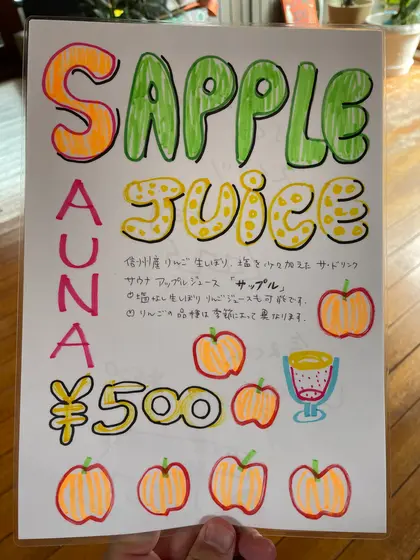 SAPPLE
JUiCE
SAUNA
信州産りんご生しぼり、塩を少々加えた サ・ドリンク
サウナ アップルジュース 「サップル」
◎塩なし生しぼりりんごジュースも可能です。
◎りんごの品種は季節によって異なります。
¥500